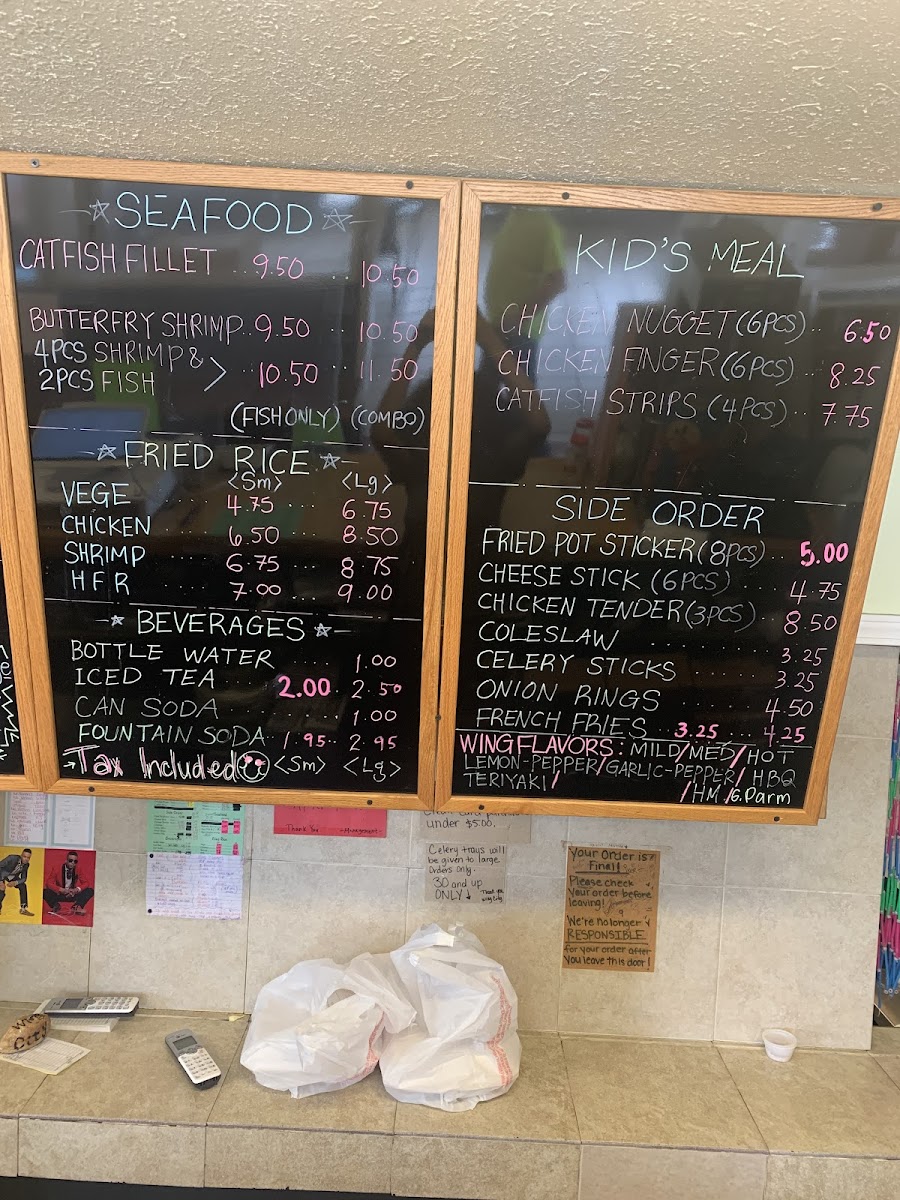 SEAFOOD
CATFISH FILLET .. 9.50 .. 10.50
BUTTERFRY SHRIMP .. 9.50 .. 10.50
4PCS SHRIMP &
2PCS FISH > 10.50 .... 11.50
(FISH ONLY) (COMBO)
FRIED RICE
<Sm> <Lg>
VEGE 4.75 6.75
CHICKEN 6.50 8.50
SHRIMP 6.75 8.75
HFR 7.00 9.00
BEVERAGES
BOTTLE WATER .... 1.00
ICED TEA .... 2.00 . 2.50
CAN SODA 1.00
FOUNTAIN SODA 1.95 .. 2.95
Tax Included <Sm> <Lg>
KID'S MEAL
CHICKEN NUGGET (6PCS) .. 6.50
CHICKEN FINGER (6PCS) .. 8.25
CATFISH STRIPS (4PCS) .. 7.75
SIDE ORDER
FRIED POT STICKER (8PCS) .. 5.00
CHEESE STICK (6PCS) 4.75
CHICKEN TENDER (3PCS) 8.50
COLESLAW 3.25
CELERY STICKS 3.25
ONION RINGS 4.50
FRENCH FRIES 3.25 4.25
WING FLAVORS: MILD/MED/HOT
LEMON-PEPPER/GARLIC-PEPPER/HBQ
TERIYAKI/ /HM/G.Parm
Thank You -Management-
under $5.00.
Celery trays will
be given to large
Orders only.
30 and up
ONLY↓
Your Order is
Final!
Please check
Your order before
leaving!
We're no longer
RESPONSIBLE
for your order after
You leave this door!